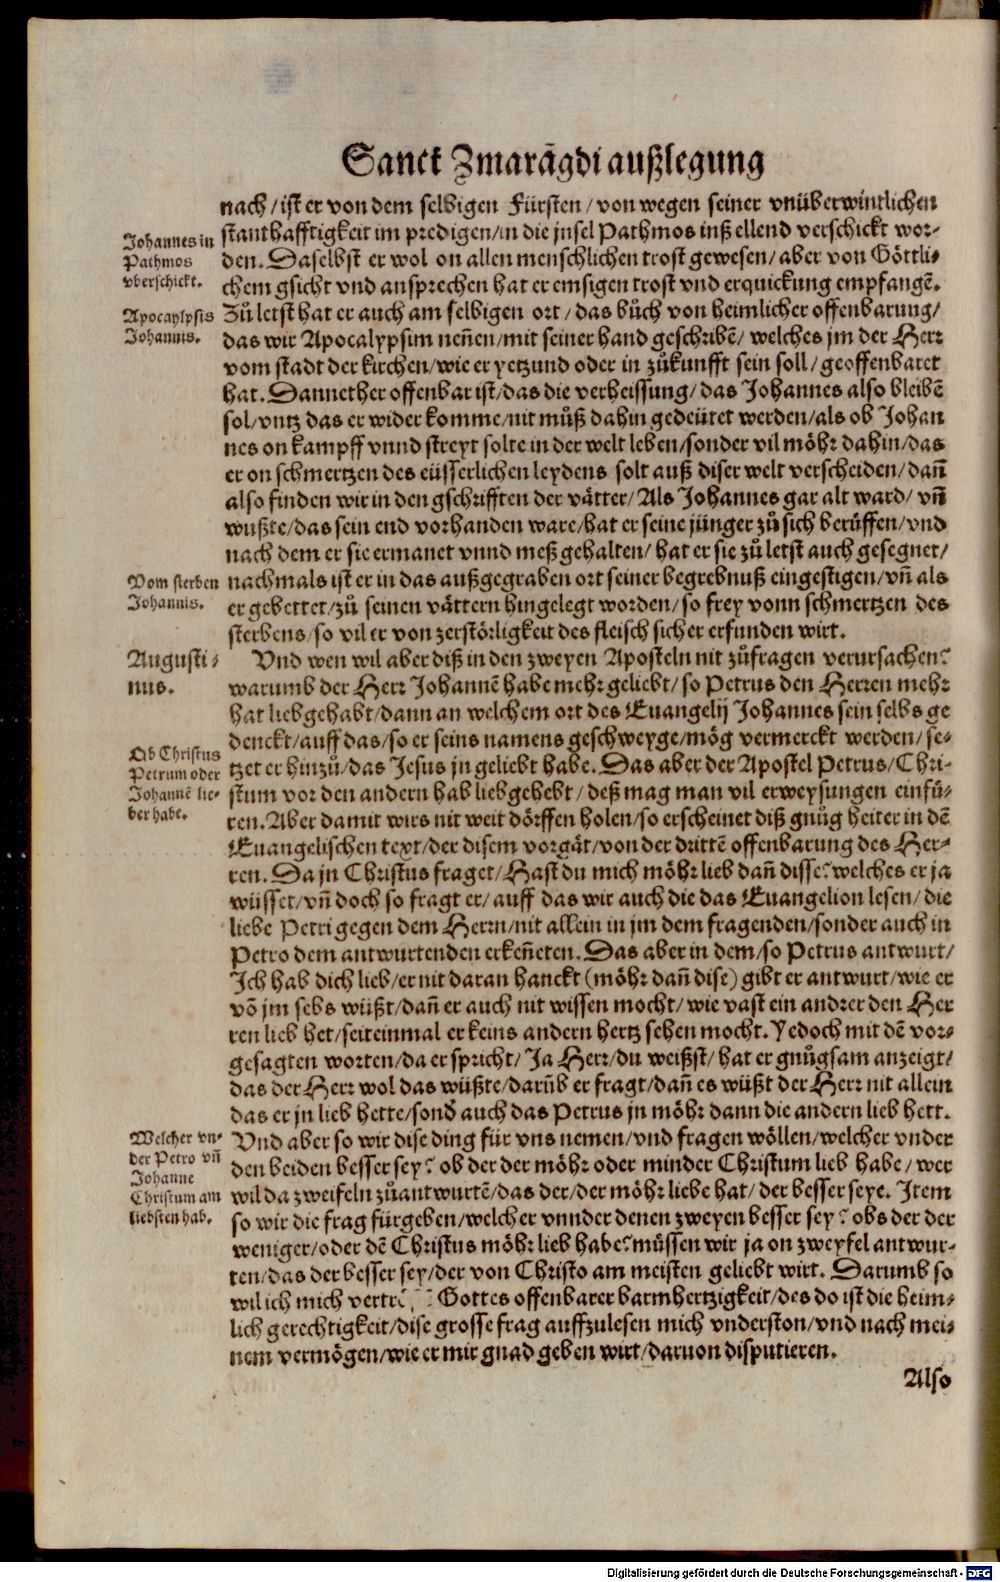 Sanct Zmarãgdi außlegung
nach/ ist er von dem selbigen Fürsten/ von wegen seiner vnüberwintlichen
Johannes in
Pathmos
vberschickt.
stanthafftigkeit im predigen/in die jnsel Pathmos inß ellend verschickt wor-
den. Daselbst er wol on allen menschlichen trost gewesen/ aber von Göttli-
chem gsicht vnd ansprechen hat er emsigen trost vnd erquickung empfangẽ.
Apocaylpsis
Johannis.
Zů letst hat er auch am selbigen ort/ das bůch von heimlicher offenbarung/
das wir Apocalypsim neñen/mit seiner hand geschribẽ/ welches jm der Herr
vom stadt der kirchen/wie er yetzund oder in zůkunfft sein soll/ geoffenbaret
hat. Dannether offenbar ist/das die verheissung/das Johannes also bleibẽ
sol/vntz das er wider komme/nit můß dahin gedeütet werden/als ob Johan
nes on kampff vnnd streyt solte in der welt leben/sonder vil möhr dahin/das
er on schmertzen des eüsserlichen leydens solt auß diser welt verscheiden/ dañ
also finden wir in den gschrifften der vätter/ Als Johannes gar alt ward/ vñ
wußte/das sein end vorhanden ware/hat er seine jünger zů sich berůffen/vnd
nach dem er sie ermanet vnnd meß gehalten/ hat er sie zů letst auch gesegnet/
Vom sterben
Johannis.
nachmals ist er in das außgegraben ort seiner begrebnuß eingestigen/vñ als
er gebettet/zů seinen vättern hingelegt worden/so frey vonn schmertzen des
sterbens/so vil er von zerstörligkeit des fleisch sicher erfunden wirt.
Augusti-
nus.
Vnd wen wil aber diß in den zweyen Aposteln nit zůfragen verursachen?
warumb der Herr Johannẽ habe mehr geliebt/ so Petrus den Herren mehr
hat liebgehabt/dann an welchem ort des Euangelij Johannes sein selbs ge
Ob Christus
Petrum oder
Johannẽ lie-
ber habe.
denckt/auff das/so er seins namens geschweyge/mög vermerckt werden/se-
tzet er hinzů/das Jesus jn geliebt habe. Das aber der Apostel Petrus/Chri-
stum vor den andern hab liebgehebt/ deß mag man vil erweysungen einfü-
ren. Aber damit wirs nit weit dörffen holen/so erscheinet diß gnůg heiter in dẽ
Euangelischen text/der disem vorgåt/von der drittẽ offenbarung des Her-
ren. Da jn Christus fraget/Hast du mich möhr lieb dañ disse? welches er ja
wüsset/vñ doch so fragt er/ auff das wir auch die das Euangelion lesen/die
liebe Petri gegen dem Herrn/nit allein in jm dem fragenden/sonder auch in
Petro dem antwurtenden erkeñeten. Das aber in dem/so Petrus antwurt/
Ich hab dich lieb/er nit daran hanckt (möhr dañ dise) gibt er antwurt/wie er
võ jm sebs wüßt/dañ er auch nit wissen mocht/ wie vast ein andrer den Her
ren lieb het/seiteinmal er keins andern hertz sehen mocht. Yedoch mit dẽ vor-
gesagten worten/da er spricht/ Ja Herr/du weißst/ hat er gnůgsam anzeigt/
das der Herr wol das wüßte/darũb er fragt/dañ es wüßt der Herr nit allein
das er jn lieb hette/sond̃ auch das Petrus jn möhr dann die andern lieb hett.
Welcher vn-
der Petro vñ
Johanne
Christum am
liebsten hab.
Vnd aber so wir dise ding für vns nemen/vnd fragen wöllen/welcher vnder
den beiden besser sey? ob der der möhr oder minder Christum lieb habe/ wer
wil da zweifeln zůantwurtẽ/das der/der möhr liebe hat/ der besser seye. Item
so wir die frag fürgeben/welcher vnnder denen zweyen besser sey? obs der der
weniger/oder dẽ Christus möhr lieb habe? müssen wir ja on zweyfel antwur-
ten/das der besser sey/der von Christo am meisten geliebt wirt. Darumb so
wil ich mich Gottes offenbarer barmhertzigkeit/des do ist die heim-
lich gerechtigkeit/dise grosse frag auffzulesen mich vnderston/vnd nach mei-
nem vermögen/wie er mir gnad geben wirt/daruon disputieren.
Also
Digitalisierung gefördert durch die Deutsche Forschungsgemeinschaft - DFG